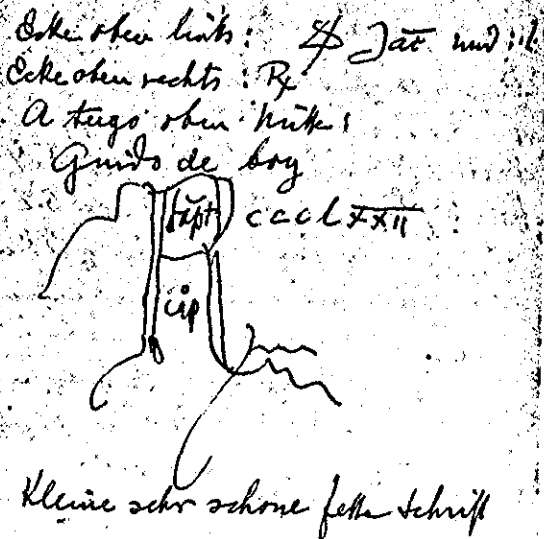 Ecke oben links: Jac̄ und :||.
Ecke oben rechts: Rx
A tergo oben Mitte:
Guido de boy
sc̄pt ccclxxii
cap
Kleine sehr schöne fette Schrift